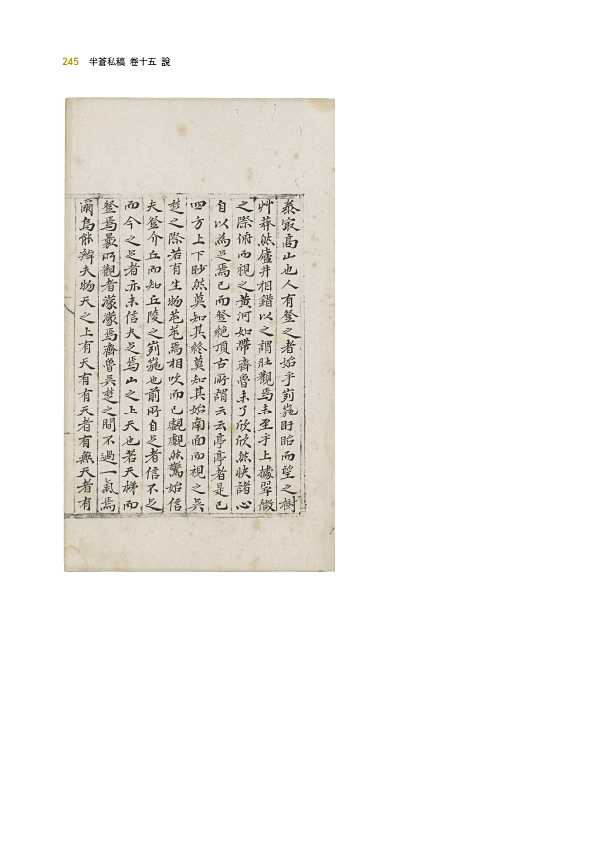 245 半蒼私稿 卷十五 說
泰㝡高山也人有登之者始乎峛崺盱眙而望之樹
艸莽然廬井相錯以之謂壯觀焉未至乎上據翠微
之際俯而視之黃河如帶齊魯未了欣欣然快諸心
自以為足焉已而登絶頂古所謂云云亭亭者是已
四方上下眇然莫知其終莫知其始南面而視之吳
楚之際若有生物芚芚焉相吹而已覷覷然驚始信
夫登介丘而知丘陵之峛崺也前所自足者信不足
而今之足者亦未信夫足焉山之上天也若天梯而
登焉曩所觀者濛濛焉齊魯吳楚之間不過一氣焉
爾烏能辨夫物天之上有天有有天者有無天者有